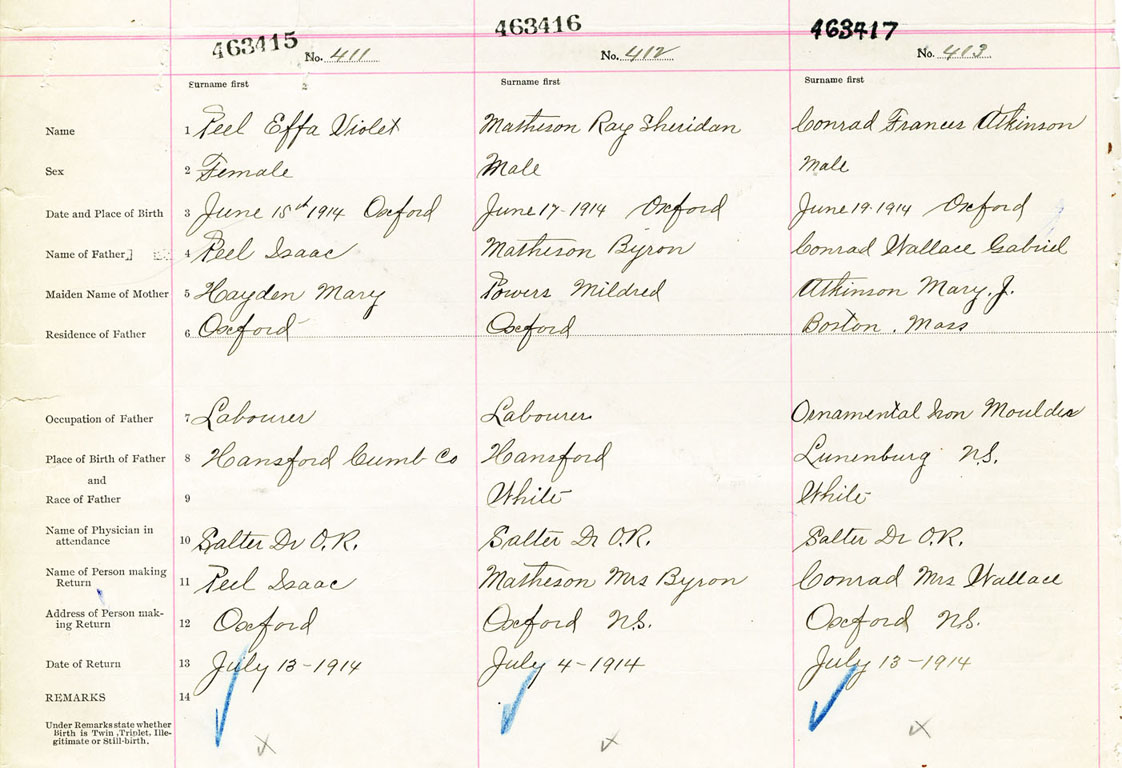 463415 463416 463417
No. 411 No. 412 No. 413
Surname first Surname first Surname first
Name 1 Peel Effa Violet Matheson Ray Sheridan Conrad Francis Atkinson
Sex 2 Female Male Male
Date and Place of Birth 3 June 15th 1914 Oxford June 17-1914 Oxford June 19-1914 Oxford
Name of Father 4 Peel Isaac Matheson Byron Conrad Wallace Gabriel
Maiden Name of Mother 5 Hayden Mary Powers Mildred Atkinson Mary. J.
Residence of Father 6 Oxford Oxford Boston. Mass
Occupation of Father 7 Labourer Labourer Ornamental Iron Moulder
Place of Birth of Father 8 Hansford Cumb Co Hansford Lunenburg N.S.
and
Race of Father 9 White White
Name of Physician in
attendance 10 Salter Dr O.R. Salter Dr O.R. Salter Dr O.R.
Name of Person making
Return 11 Peel Isaac Matheson Mrs Byron Conrad Mrs Wallace
Address of Person mak-
ing Return 12 Oxford Oxford N.S. Oxford N.S.
Date of Return 13 July 13-1914 July 4-1914 July 13-1914
REMARKS 14
Under Remarks state whether
Birth is Twin, Triplet, Ille-
gitimate or Still-birth.